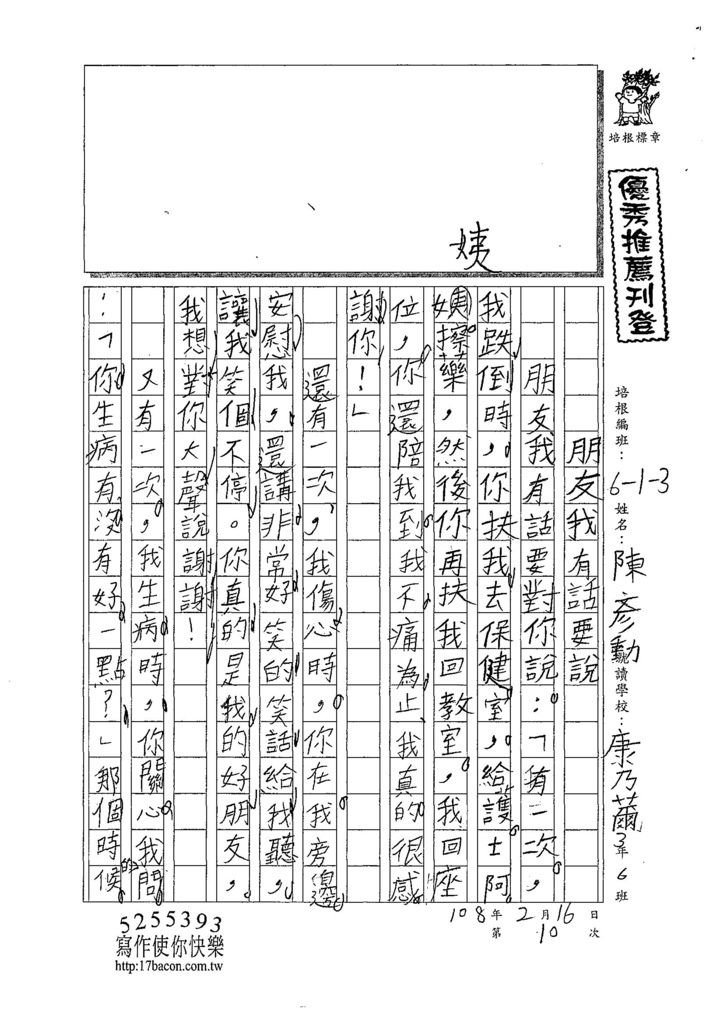 培根標章
優秀推薦刊登
培根編班：6-1-3 姓名：陳彥勳 就讀學校：康乃薾 3年6班
姨
朋友我有話要說
朋友我有話要對你說：「有一次，
我跌倒時，你扶我去保健室，給護士阿
姨擦藥，然後你再扶我回教室，我回座
位，你還陪我到我不痛為止，我真的很感
謝你！」
還有一次，我傷心時，你在我旁邊
安慰我，還講非常好笑的笑話給我聽，
讓我笑個不停。你真的是我的好朋友，
我想對你大聲說謝謝！
又有一次，我生病時，你關心我問
：「你生病有沒有好一點？」那個時候的
108年2月16日
第10次
5255393
寫作使你快樂
http:17bacon.com.tw